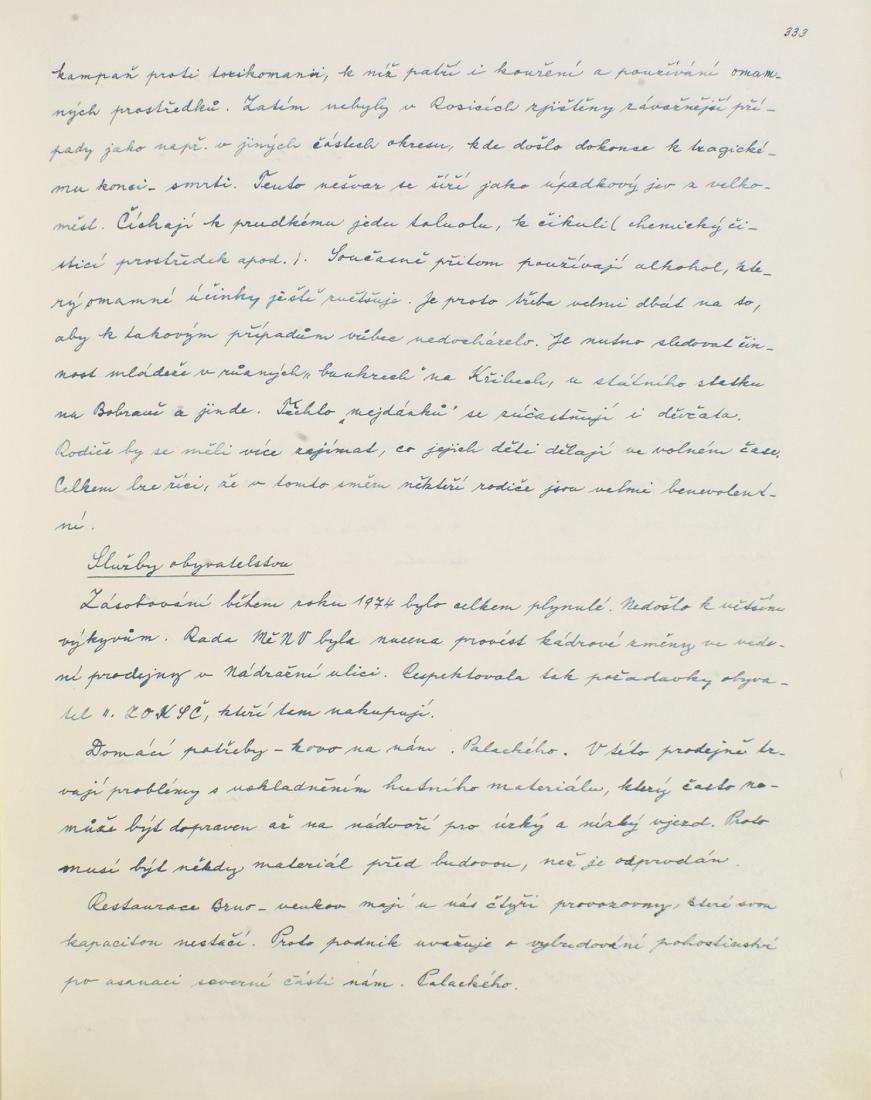 333
kampaň proti toxikomanii, k níž patří i kouření a používání omam-
ných prostředků. Zatím nebyly v Rosicích zjištěny závažnější pří-
pady jako např. v jiných částech okresu, kde došlo dokonce k tragické-
mu konci - smrti. Tento nešvar se šíří jako úpadkový jev z velko-
měst. Čichají k prudkému jedu toluolu, k čikuli ( chemický či-
sticí prostředek apod. ). Současně přitom používají alkohol, kte-
rý omamné účinky ještě zvětšuje. Je proto třeba velmi dbát na to,
aby k takovým případům vůbec nedocházelo. Je nutno sledovat čin-
nost mládeže v různých „bunkrech" na Křibech, u státního statku
na Bobravě a jinde. Těchto „mejdánků" se zúčastňují i děvčata.
Rodiče by se měli více zajímat, co jejich děti dělají ve volném čase.
Celkem lze říci, že v tomto směru někteří rodiče jsou velmi benevolent-
ní.
Služby obyvatelstvu
Zásobování během roku 1974 bylo celkem plynulé. Nedošlo k větším
výkyvům. Rada MěNV byla nucena provést kádrové změny ve vede-
ní prodejny v Nádražní ulici. Respektovala tak požadavky obyva-
tel u. ZO KSČ, kteří tam nakupují.
Domácí potřeby - kovo na nám. Palackého. V této prodejně tr-
vají problémy s uskladněním hutního materiálu, který často ne-
může být dopraven až na nádvoří pro úzký a nízký vjezd. Proto
musí být někdy materiál před budovou, než je odprodán.
Restaurace Brno - venkov mají u nás čtyři provozovny, které svou
kapacitou nestačí. Proto podnik uvažuje o vybudování pohostinství
po asanaci severní části nám. Palackého.